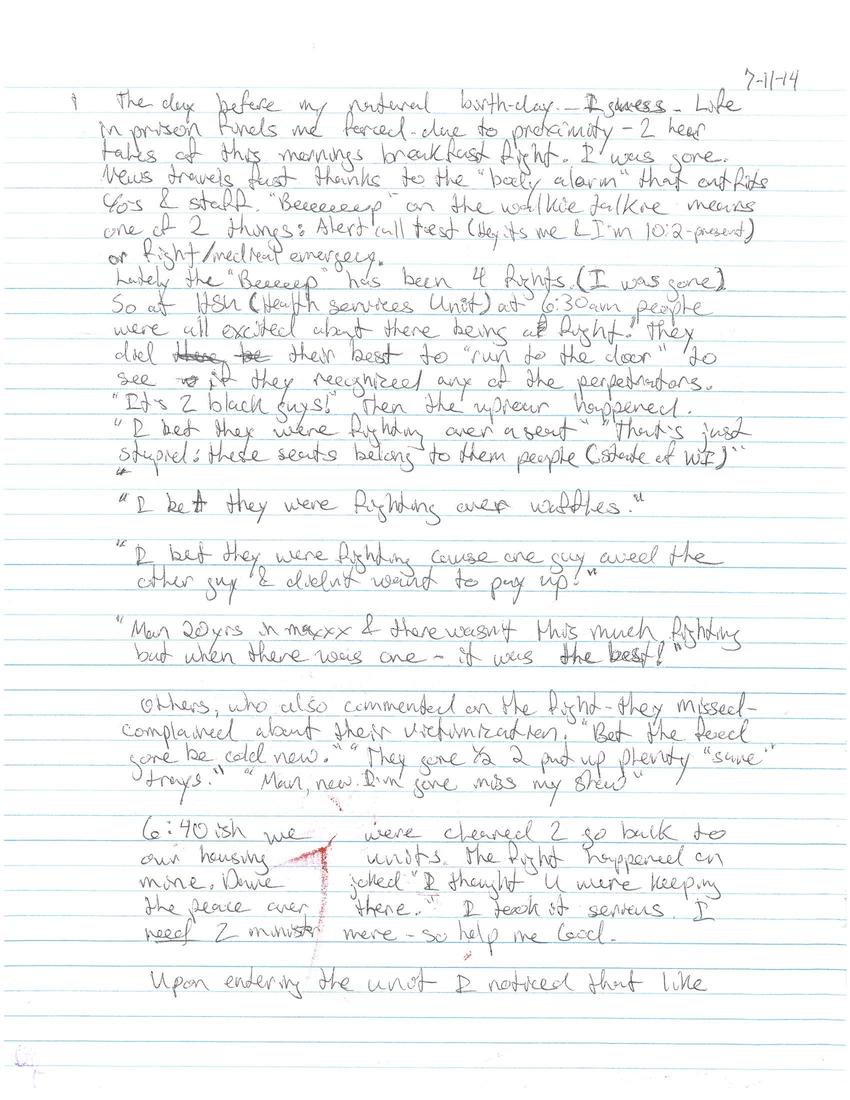 7-11-14
1 The day before my natural birth-day - I guess - Life
in prison finds me forced - due to proximity - 2 hear
tales of this mornings breakfast fight. I was gone.
News travels fast thanks to the "body alarm" that outfits
C/o's & staff. "Beeeeeeep" on the walkie talkie means
one of 2 things: Alert call test (Hey its me & I'm 10:2-present)
or fight/medical emergecy.
Lately the "Beeeeep" has been 4 fights. (I was gone)
So at HSU (Health services Unit) at 6:30am people
were all excited about there being a fight. They
did there be their best to "run to the door" to
see if they recognized any of the perpetrators.
"It's 2 black guys!" Then the uproar happened.
"I bet they were fighting over a seat" "That's just
stupid: these seats belong to them people (state of WI)"
"
"I bet they were fighting over waffles."
"I bet they were fighting cause one guy owed the
other guy & didn't want to pay up."
"Man 20yrs in maxxx & there wasn't this much fighting
but when there was one - it was the best!"
Others, who also commented on the fight - they missed -
complained about their victimization. "Bet the food
gone be cold now." "They gone 1/2 2 put up plenty "save"
trays." "Man, now I'm gone miss my show"
6:40ish we were cleared 2 go back to
our housing units. The fight happened on
mine. Dude joked "I thought U were keeping
the peace over there." I took it serious. I
need 2 minister more - so help me God.
Upon entering the unit I noticed that like